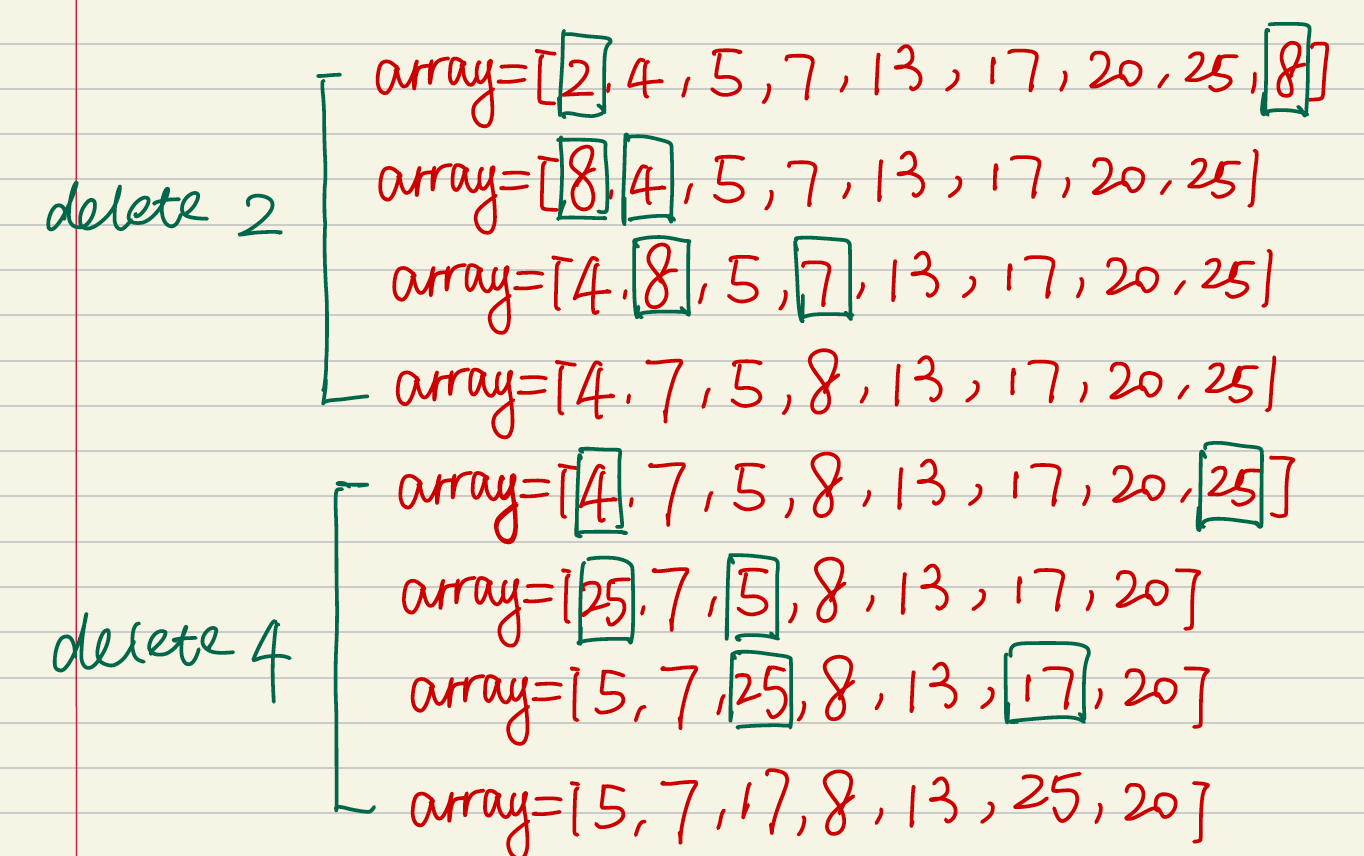 array=[2,4,5,7,13,17,20,25,8]
delete 2
array=[8,4,5,7,13,17,20,25]
array=[4,8,5,7,13,17,20,25]
array=[4,7,5,8,13,17,20,25]
array=[4,7,5,8,13,17,20,25]
array=[25,7,5,8,13,17,20]
delete 4
array=[5,7,25,8,13,17,20]
array=[5,7,17,8,13,25,20]